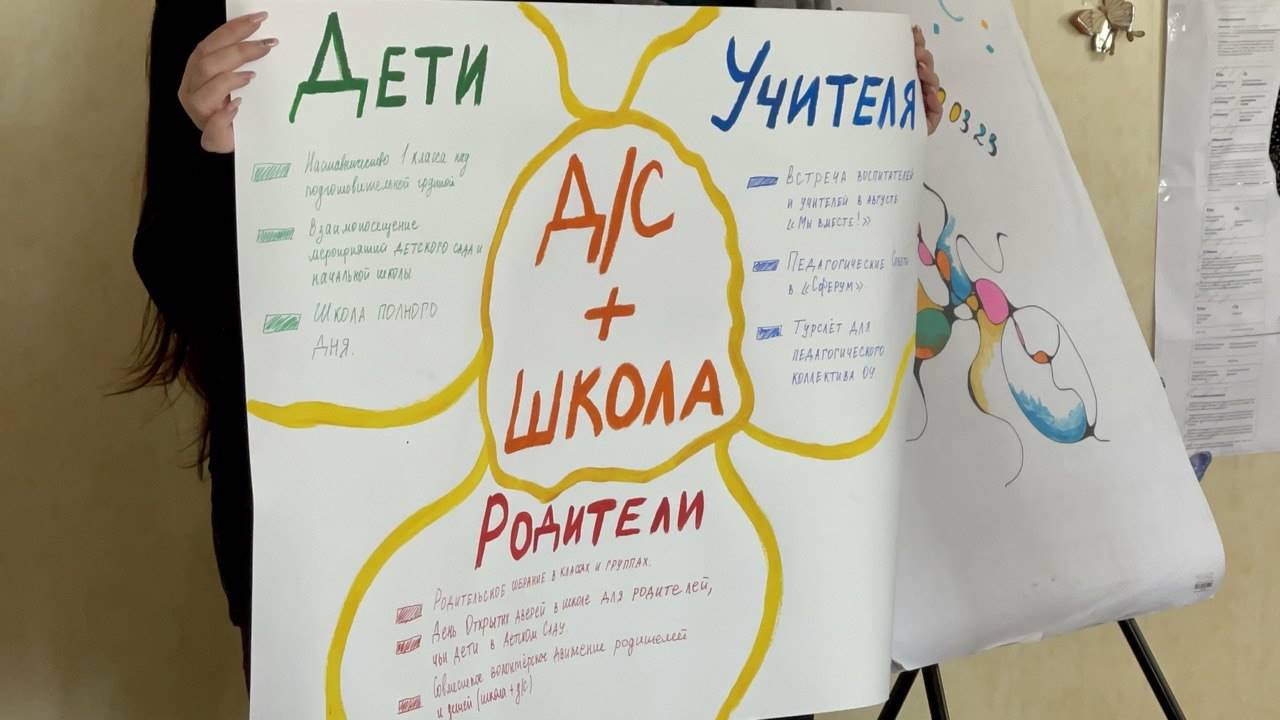 Дети
Наставничество 1 класса над
подготовительной группой
Взаимопосещение
мероприятий детского сада и
начальной школы
Школа полного
дня.
Учителя
Встреча воспитателей
и учителей в августе
«Мы вместе!»
Педагогические Советы
в «Сферум»
Турслёт для
педагогического
коллектива ОУ
Д/С
+
школа
Родители
Родительское собрание в классах и группах.
День Открытых дверей в школе для родителей,
чьи дети в Детском Саду.
Совместное волонтёрское движение родителей
и детей (школа + д/с)
03.23